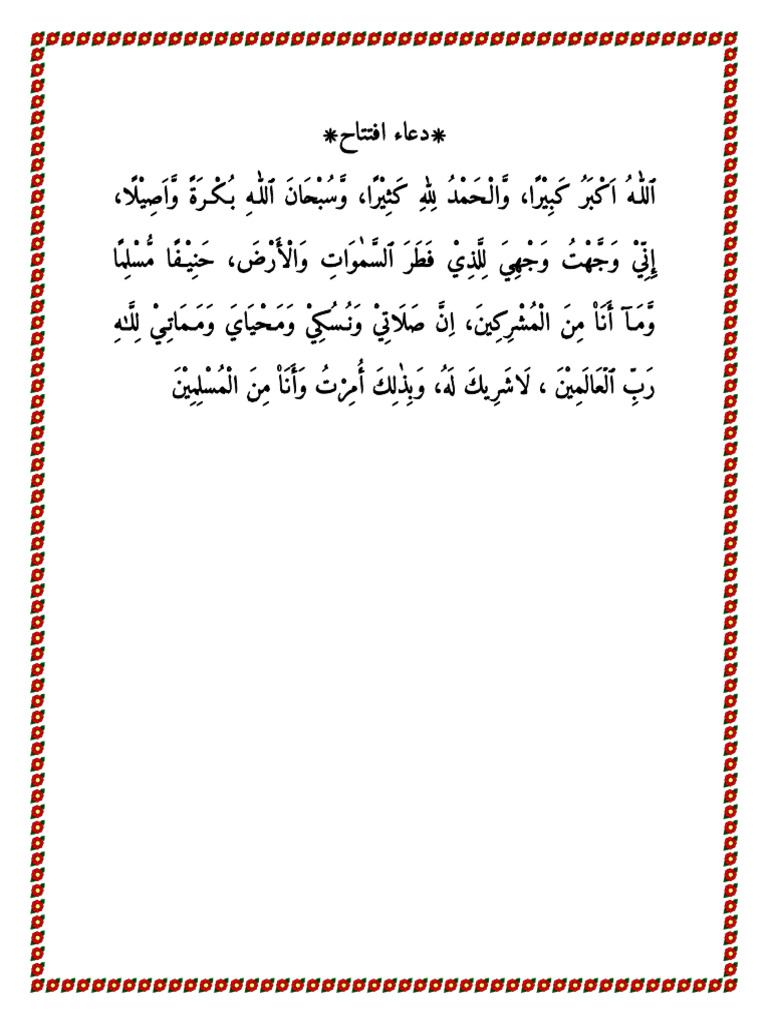 *دعاء افتتاح*
ٱللّٰهُ اَكْبَرُ كَبِيْرًا، وَّالْحَمْدُ لِلّٰهِ كَثِيْرًا، وَّسُبْحَانَ ٱللّٰهِ بُكْرَةً وَّاَصِيْلًا،
إِنِّيْ وَجَّهْتُ وَجْهِيَ لِلَّذِيْ فَطَرَ ٱلسَّمٰوَاتِ وَالْأَرْضَ، حَنِيْفًا مُّسْلِمًا
وَّمَآ أَنَا۠ مِنَ الْمُشْرِكِينَ، اِنَّ صَلَاتِيْ وَنُسُكِيْ وَمَحْيَايَ وَمَمَاتِيْ لِلَّٰهِ
رَبِّ ٱلْعَالَمِيْنَ ، لَاشَرِيكَ لَهُ، وَبِذٰلِكَ أُمِرْتُ وَأَنَا۠ مِنَ الْمُسْلِمِيْنَ